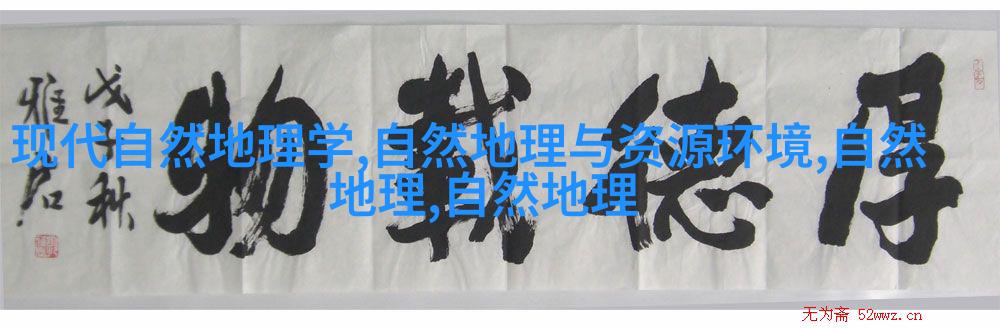 厚德载物
戊子秋
雅石
现代自然地理学,自然地理与资源环境,自然
地理,自然地理
无为斋 52wwz.cn